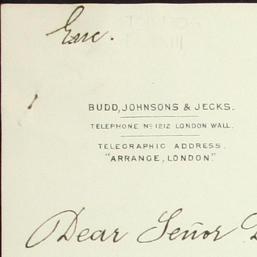 Enc.
BUDD, JOHNSONS & JECKS.
TELEPHONE Nº 1212 LONDON WALL.
TELEGRAPHIC ADDRESS.
"ARRANGE, LONDON."
Dear Señor